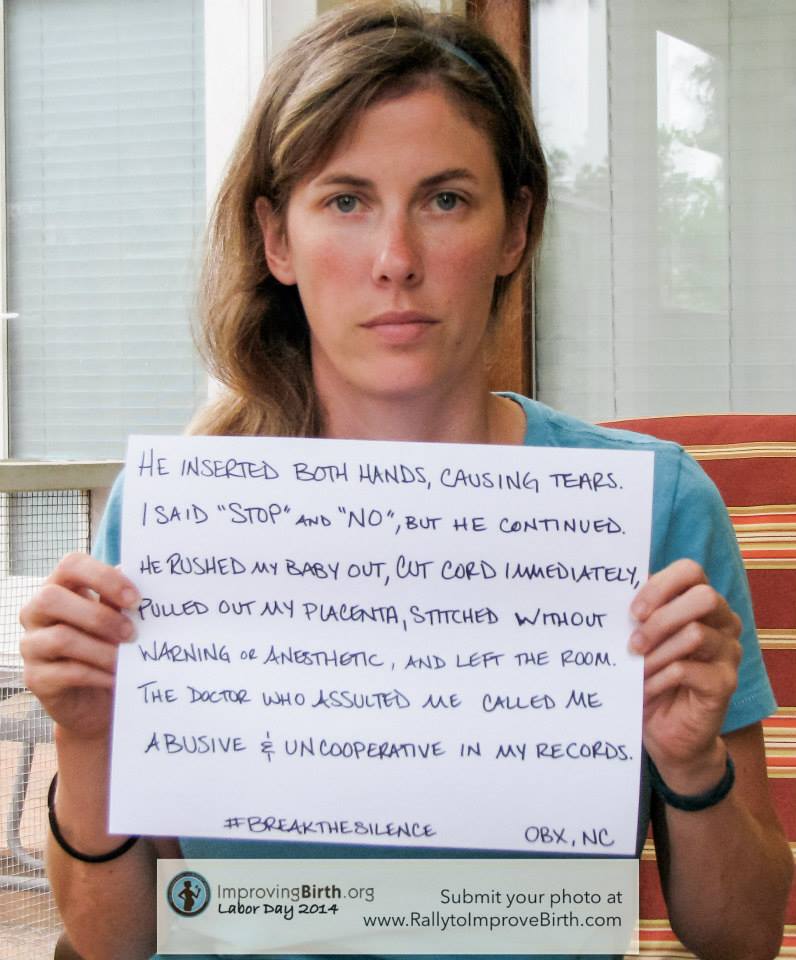 HE INSERTED BOTH HANDS, CAUSING TEARS.
I SAID "STOP" AND "NO", BUT HE CONTINUED.
HE RUSHED MY BABY OUT, CUT CORD IMMEDIATELY,
PULLED OUT MY PLACENTA, STITCHED WITHOUT
WARNING OR ANESTHETIC, AND LEFT THE ROOM.
THE DOCTOR WHO ASSULTED ME CALLED ME
ABUSIVE & UNCOOPERATIVE IN MY RECORDS.
#BREAKTHESILENCE
OBX, NC
ImprovingBirth.org
Labor Day 2014
Submit your photo at
www.RallytoImproveBirth.com